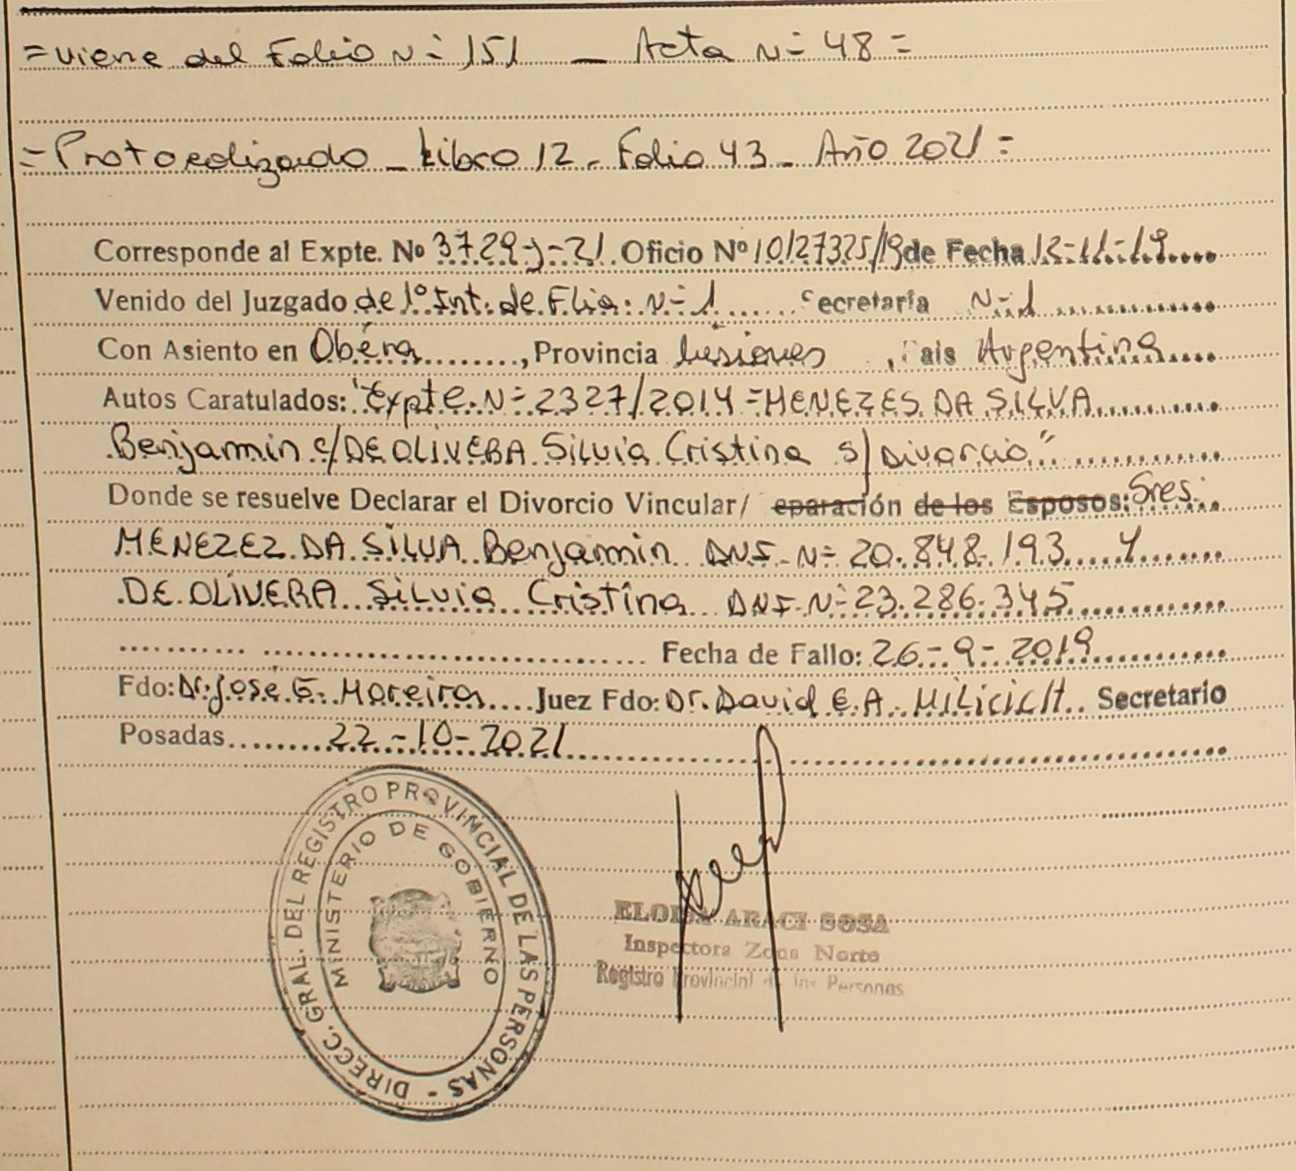 =viene del Folio N° 151 _ Acta N° 48=
=Protocolizado _ Libro 12 - Folio 43 - Año 2021=
Corresponde al Expte. Nº 3729-J-21 Oficio Nº 10127325/19 de Fecha 12-11-19
Venido del Juzgado de 1º Int. de Flia: N°1 Secretaría N°1
Con Asiento en Oberá, Provincia Misiones, País Argentina
Autos Caratulados: "Expte. N° 2327/2014 =MENEZES DA SILVA
Benjamin c/ DE OLIVERA Silvia Cristina s/ Divorcio"
Donde se resuelve Declarar el Divorcio Vincular/ eparación de los Esposos: Sres.
MENEZEZ DA SILVA Benjamin DNI N° 20.848.193 y
DE OLIVERA Silvia Cristina DNI N° 23.286.345
Fecha de Fallo: 26-9-2019
Fdo: Dr. José G. Moreira Juez Fdo: Dr. David E.A. MiLiciCH Secretario
Posadas 22-10-2021
DIRECC. GRAL. DEL REGISTRO PROVINCIAL DE LAS PERSONAS -
MINISTERIO DE GOBIERNO
ARACI SOSA
Inspectora Zona Norte
Registro Provincial de las Personas